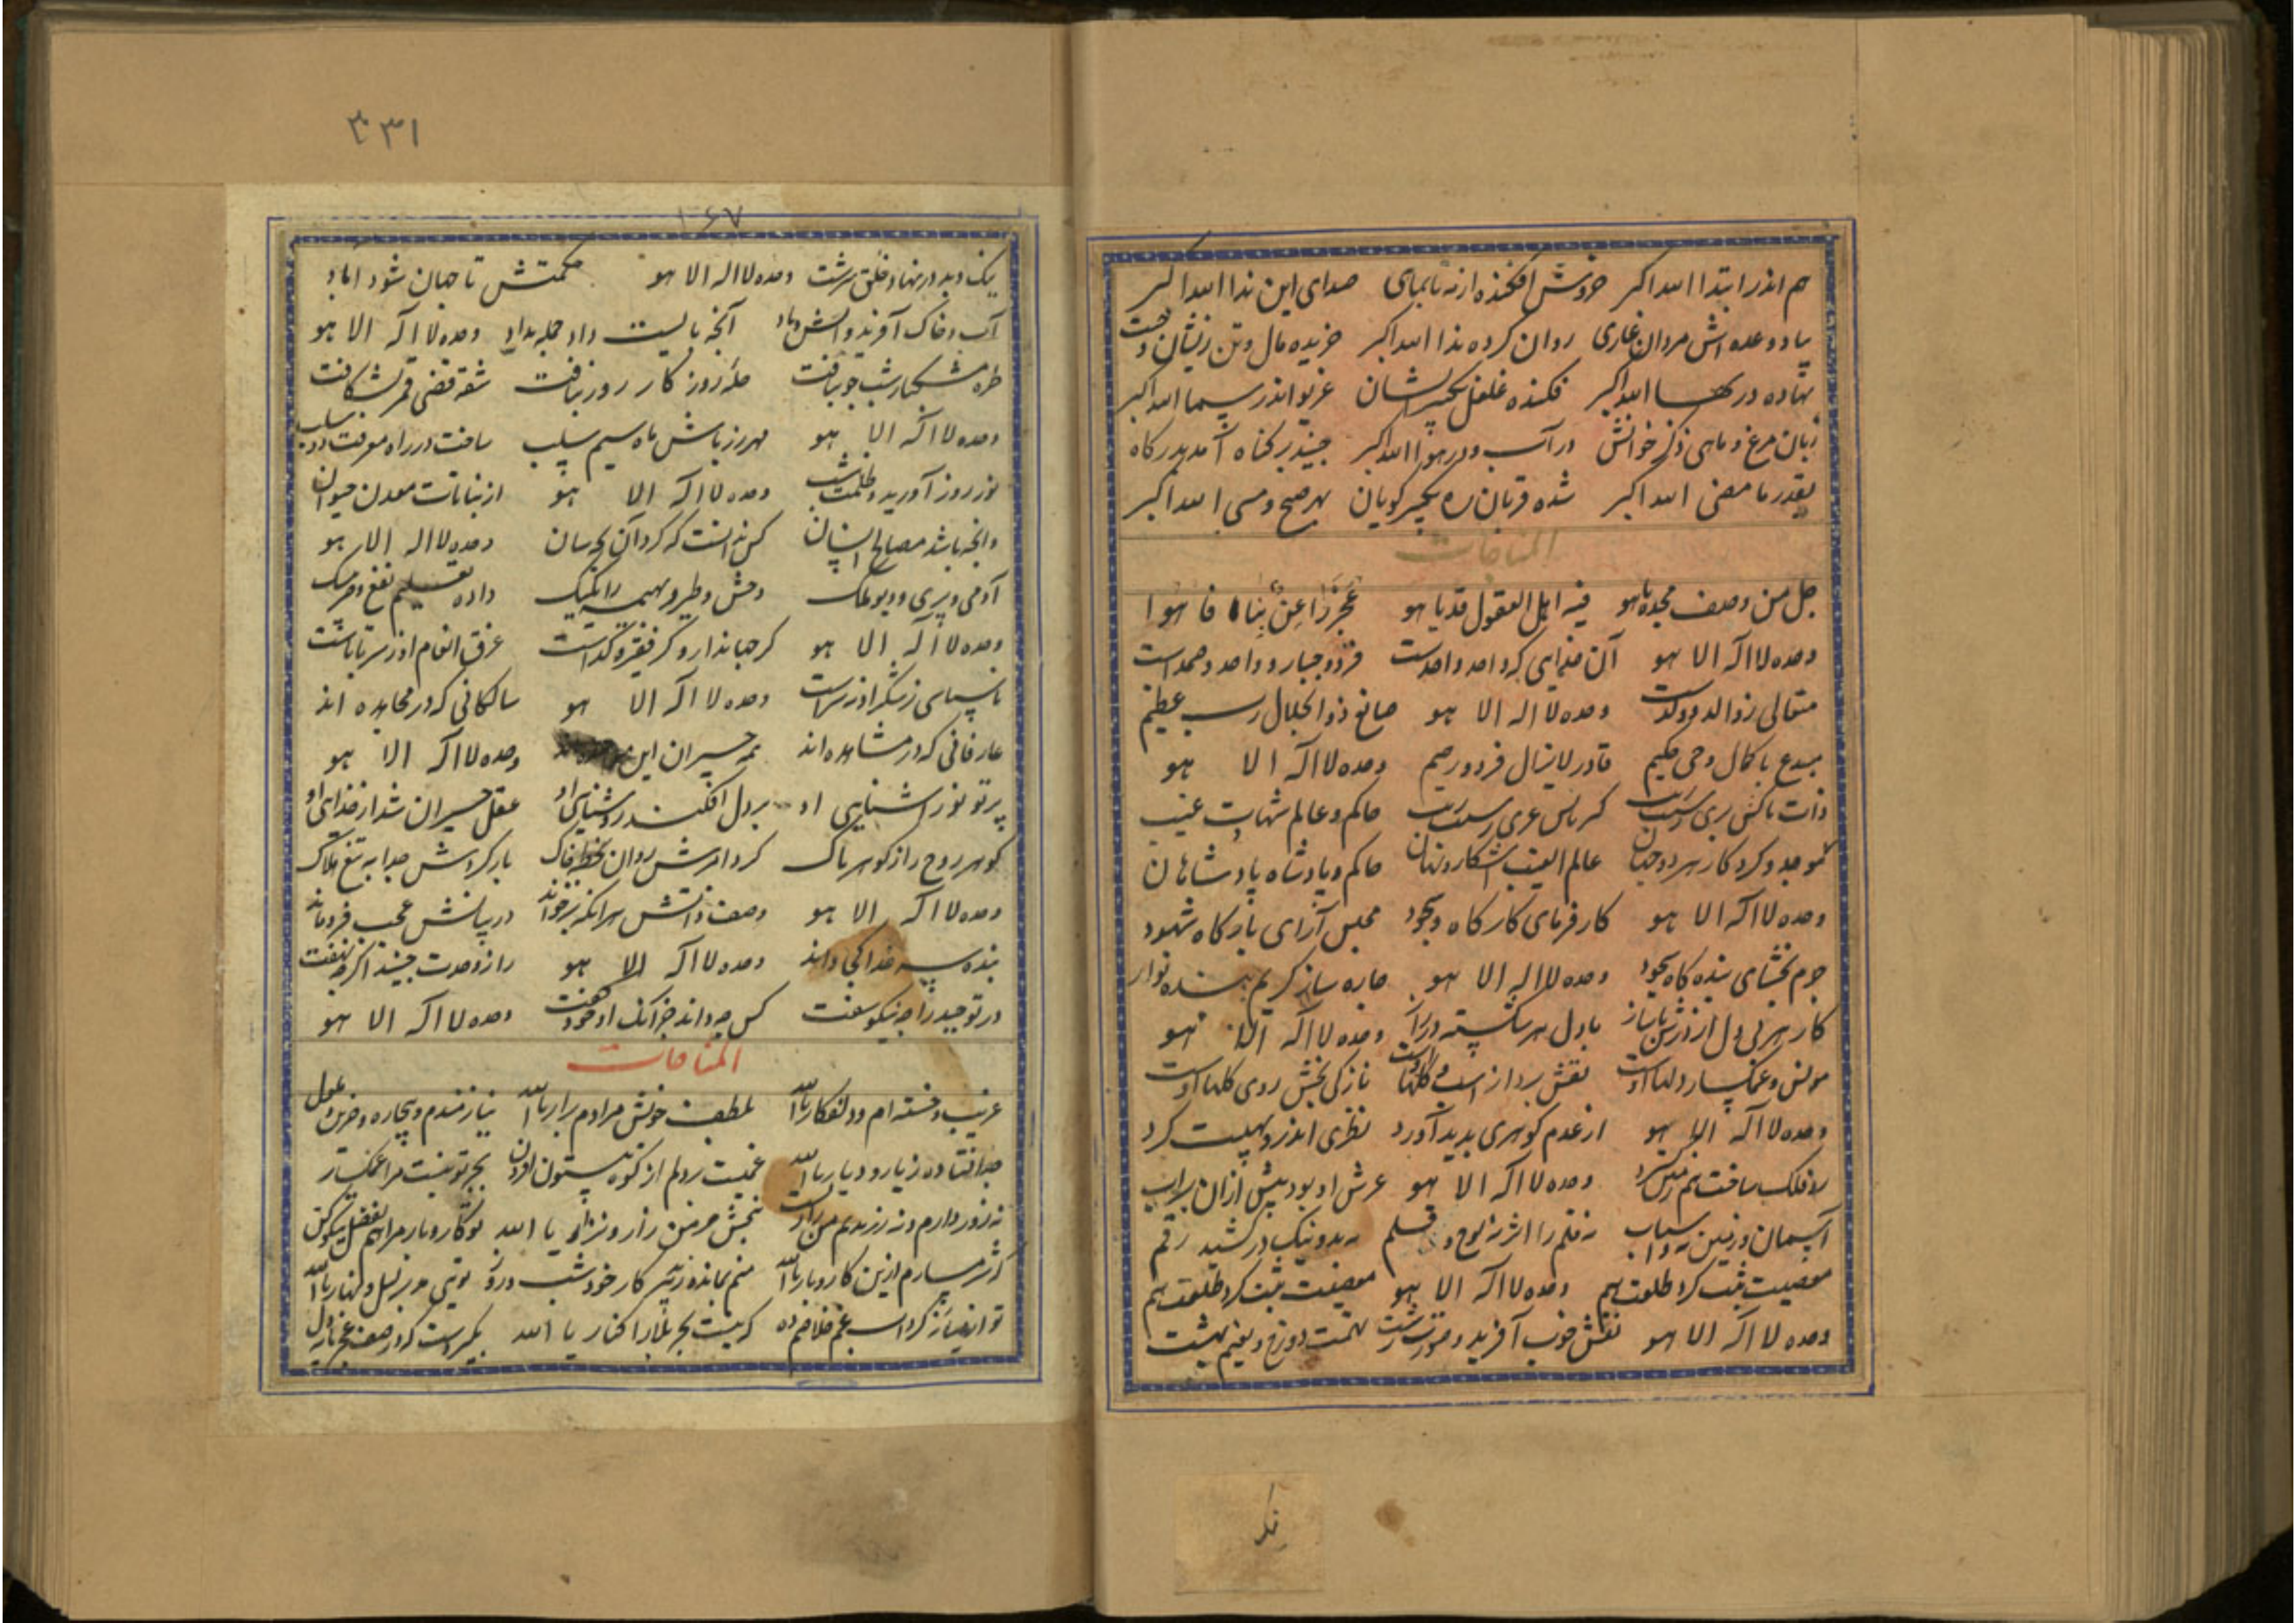 هم اندر ابتدا الله اکبر خروش افکنده از مه تا بماهی صدای این ندا الله اکبر
بیاد وعده اش مردان غازی روان کرده ندا الله اکبر خریده مال و تن زیشان
نهاده در بها الله اکبر فکنده غلغل تکبیر ایشان غریو اندر سما الله اکبر
زبان مرغ و ماهی ذکر خوانش در آب و در هوا الله اکبر جنید پر گناه آمد بدرگاه
بقدر ما مضی الله اکبر شده قربان ره تکبیر گویان بهر صبح و مسی الله اکبر
المناجات
جل من وصف مجده ما هو فیه اهل العقول قد یا هو عجزوا عن فاهوا
وحده لا اله الا هو آن خدایی که واحد و احدست فرد و جبار و واحد و صمدست
متعالی ز والد و ولدست وحده لا اله الا هو صانع ذو الجلال رب عظیم
مبدع با کمال و حی حکیم قادر لا یزال فرد و رحیم وحده لا اله الا هو
ذات پاکش بری حاکم و عالم شهادت غیب
موجد و کردکار هر دو جهان عالم الغیب آشکار و نهان حاکم و پادشاه پادشاهان
وحده لا اله الا هو کارفرمای کارگاه وجود مجلس آرای بارگاه شهود
جرم بخشای بنده گاه سجود وحده لا اله الا هو چاره ساز کریم بنده نواز
کار هر بی دل از درش با ساز با دل هر شکسته وحده لا اله الا هو
مونس و غمگسار دلها اوست نقش پرداز نازکی بخش روی گلها اوست
وحده لا اله الا هو از عدم گوهری پدید آورد نظری اندرو بهیبت کرد
زو فلک ساخت هم زمین وحده لا اله الا هو عرش او بود پیش ازان بر آب
آسمان و زمین نه قلم را اثر نه لوح و قلم بد و نیک در کشید رقم
معصیت ثبت کرد طاعت هم وحده لا اله الا هو معصیت ثبت کرد طاعت هم
وحده لا اله الا هو نقش خوب آفرید و صورت زشت دوزخ و نعیم بهشت
۳۳۱
۱۶۷
نیک و بد در نهاد خلق سرشت وحده لا اله الا هو حکمتش تا جهان شود آباد
آب و خاک آفرید و آتش و باد آنچه بایست داد جمله بداد وحده لا اله الا هو
طره مشکبار شب چو بتافت حله روزگار روز ببافت شقه قمر بشکافت
وحده لا اله الا هو مهر زر پاش ماه سیم ساخت در راه معرفت
نور روز آورید و ظلمت شب وحده لا اله الا هو از نباتات معدن حیوان
وانچه باشد مصالح انسان کس ندانست که کرد آن بچه سان وحده لا اله الا هو
آدمی و پری و دیو و ملک وحش و طیر و بهیمه را یکیک داده تقسیم نفع
وحده لا اله الا هو گر جهاندار و گر فقیر و گداست غرق انعام او ز سر تا پاست
با سپاس وحده لا اله الا هو سالکانی که در مجاهده اند
عارفانی که در مشاهده اند همه حیران این وحده لا اله الا هو
پرتو نور آشنایی او بر دل افکند روشنایی او عقل حیران شد از خدایی او
گوهر روح را ز گوهر پاک کرد امرش روان بخطه خاک باز کردش جدا به تیغ هلاک
وحده لا اله الا هو وصف ذاتش هر آنکه بر خواند در بیانش عجب فرو ماند
بنده سر خدا کجا داند وحده لا اله الا هو راز وحدت جنید اگر چه نهفت
در توحید را چه نیکو سفت کس چه داند جز آنک او خود گفت وحده لا اله الا هو
المناجات
غریب و خسته ام و دلفکار یا الله بلطف خویش مرادم برار یا الله نیازمندم و بیچاره و حزین و
جدا فتاده ز یار و دیار یا الله غمیست بر دلم از کوه بیستون افزون بجز تو نیست مرا غمگسار
نه زور دارم و نه زر ببخش بر من زار و نزار یا الله تو کار و بار مرا هم بفضل نیکو کن
که شرمسارم ازین کار و بار یا الله منم بمانده ز تدبیر کار خود شب و روز تویی مدبر لیل و نهار یا الله
که نیست بحر بلا را کنار یا الله
نکـ